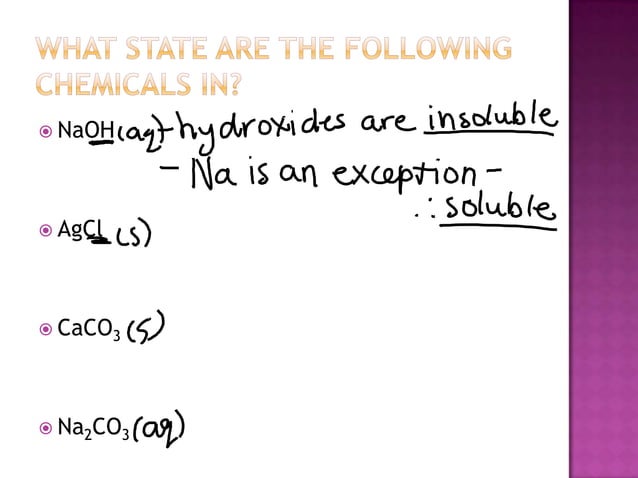 WHAT STATE ARE THE FOLLOWING
CHEMICALS IN?
NaOH (aq) - hydroxides are insoluble
- Na is an exception -
∴ soluble
AgCl (s)
CaCO₃ (s)
Na₂CO₃ (aq)